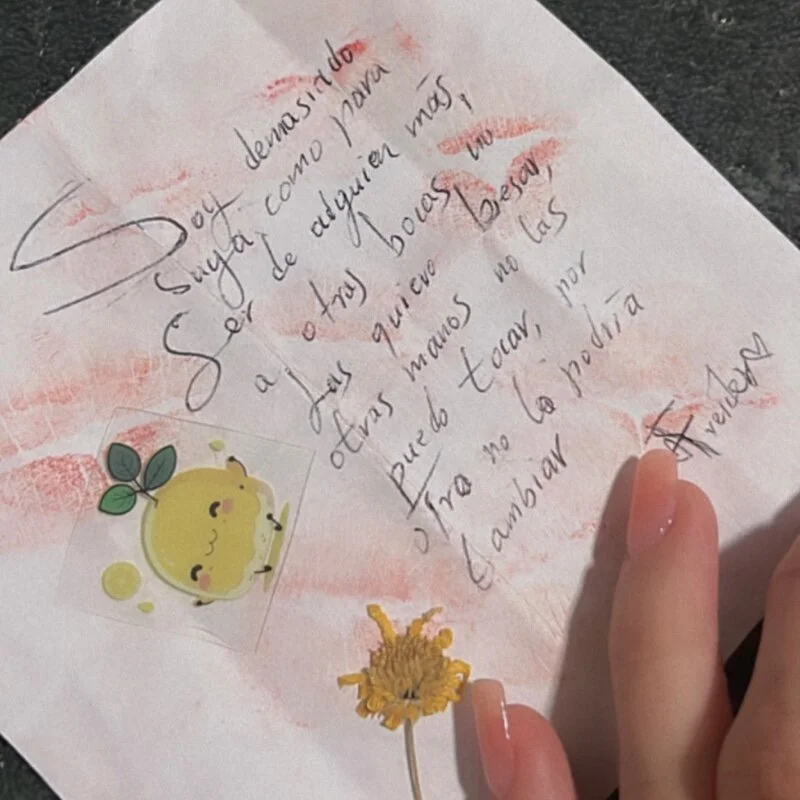 Soy demasiado
suya como para
Ser de alguien más,
a otras bocas no
Las quiero besar,
otras manos no las
puedo tocar, por
otra no la podría
Cambiar